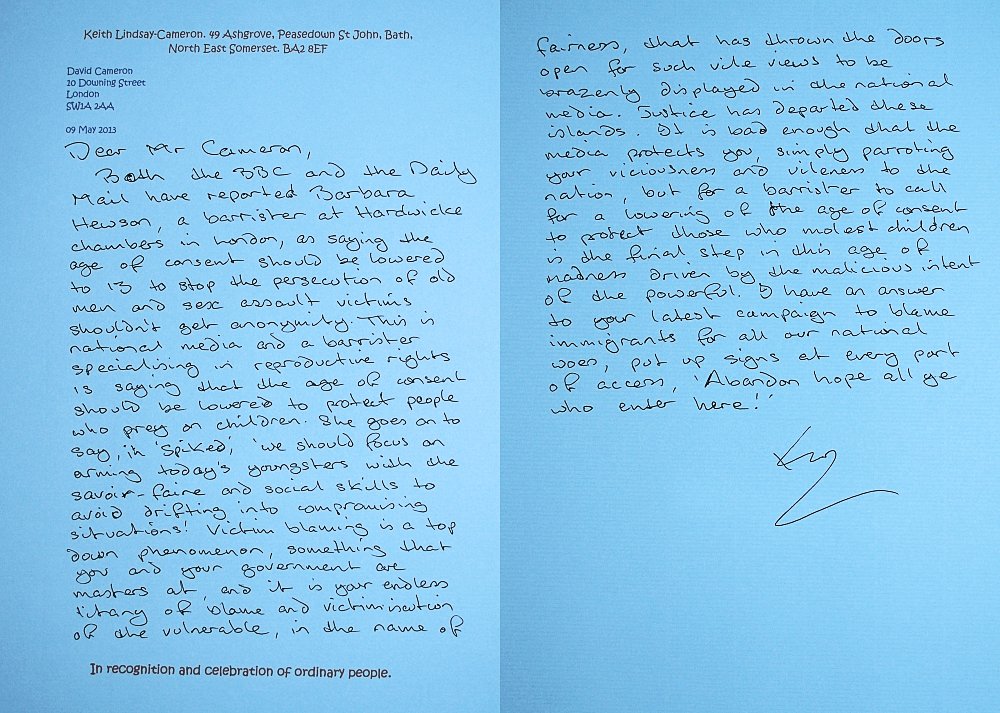 Keith Lindsay-Cameron. 49 Ashgrove, Peasedown St John, Bath,
North East Somerset. BA2 8EF
David Cameron
10 Downing Street
London
SW1A 2AA
09 May 2013
Dear Mr Cameron,
Both the BBC and the Daily
Mail have reported Barbara
Hewson, a barrister at Hardwicke
chambers in London, as saying the
age of consent should be lowered
to 13 to stop the persecution of old
men and sex assault victims
shouldn't get anonymity. This is
national media and a barrister
specialising in reproductive rights
is saying that the age of consent
should be lowered to protect people
who prey on children. She goes on to
say, in 'Spiked', 'we should focus on
arming today's youngsters with the
savoir-faire and social skills to
avoid drifting into compromising
situations!' Victim blaming is a top
down phenomenon, something that
you and your government are
masters at, and it is your endless
litany of blame and victimisation
of the vulnerable, in the name of
In recognition and celebration of ordinary people.
fairness, that has thrown the doors
open for such vile views to be
brazenly displayed in the national
media. Justice has departed these
islands. It is bad enough that the
media protects you, simply parroting
your viciousness and vileness to the
nation, but for a barrister to call
for a lowering of the age of consent
to protect those who molest children
is the final step in this age of
madness driven by the malicious intent
of the powerful. I have an answer
to your latest campaign to blame
immigrants for all our national
woes, put up signs at every port
of access, 'Abandon hope all ye
who enter here!'